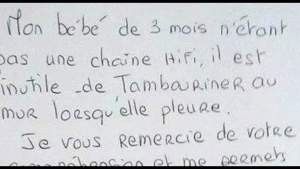 Mon bébé de 3 mois n'étant
pas une chaîne HiFi, il est
inutile de Tambouriner au
mur lorsqu'elle pleure.
Je vous remercie de votre
compréhension et me permets